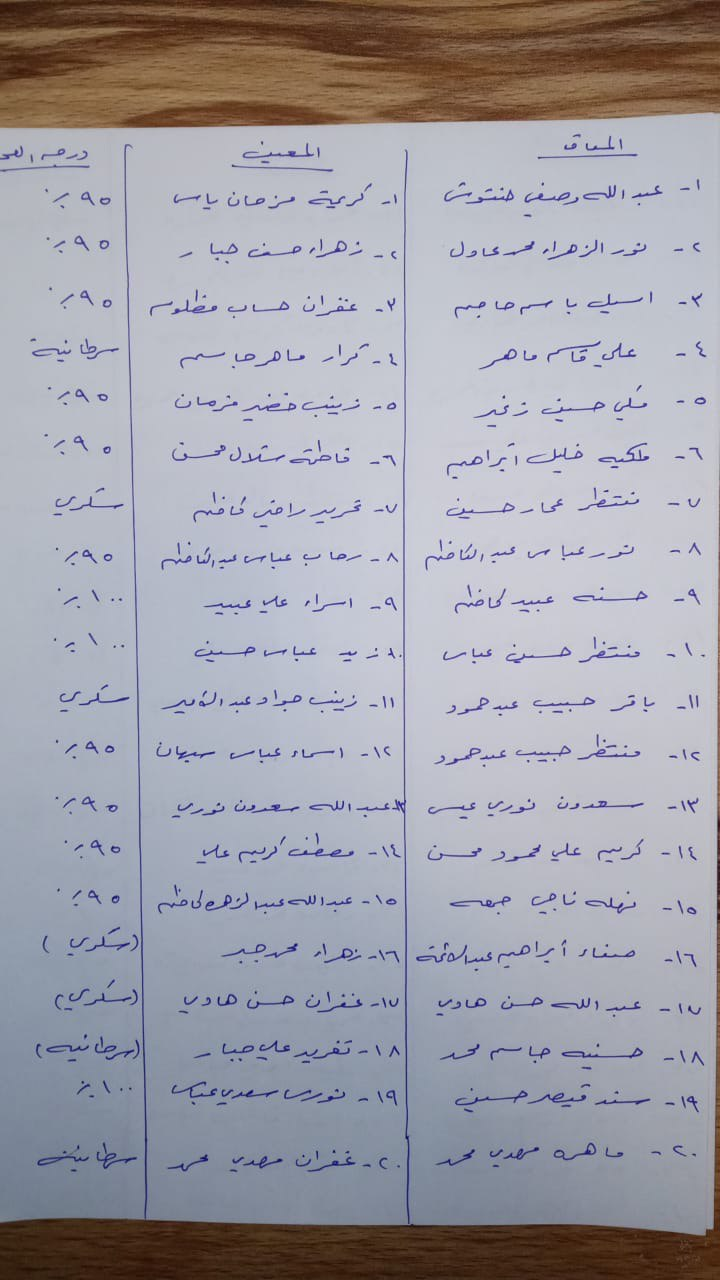 المعاق المعين درجة العجز
١- عبد الله وصفي حنتوش ١- كريمة فرحان ياس ٩٥٪
٢- نور الزهراء محمد عادل ٢- زهراء حسن جبار ٩٥٪
٣- اسيل باسم جاسم ٣- غفران حساب مظلوم ٩٥٪
٤- علي قاسم ماهر ٤- كرار ماهر جاسم سرطانية
٥- مكي حسين زغير ٥- زينب خضير فرحان ٩٥٪
٦- ملكيه خليل ابراهيم ٦- فاطمة شلال محسن ٩٥٪
٧- منتظر عمار حسين ٧- تحرير راضي كاظم سكري
٨- نور عباس عبد الكاظم ٨- رحاب عباس عبد الكاظم ٩٥٪
٩- حسنه عبيد كاظم ٩- اسراء علي عبيد ١٠٠٪
١٠- منتظر حسين عباس ١٠- زيد عباس حسين ١٠٠٪
١١- باقر حبيب عبد حمود ١١- زينب جواد عبد الامير سكري
١٢- منتظر حبيب عبد حمود ١٢- اسماء عباس ٩٥٪
١٣- سعدون نوري عيسى ١٣- عبد الله سعدون نوري ٩٥٪
١٤- كريم علي محمود محسن ١٤- مصطفى كريم علي ٩٥٪
١٥- نهله ناجي جمعه ١٥- عبد الله عبد الزهره كاظم ٩٥٪
١٦- صفاء أبراهيم عبد الائمة ١٦- زهراء محمد جبر (سكري)
١٧- عبد الله حسن هادي ١٧- غفران حسن هادي (سكري)
١٨- حسنيه جاسم محمد ١٨- تغريد علي جبار (سرطانيه)
١٩- سند قيصر حسين ١٩- نورس سعدي عباس ١٠٠٪
٢٠- ماهره مهدي محمد ٢٠- غفران مهدي محمد سرطانية